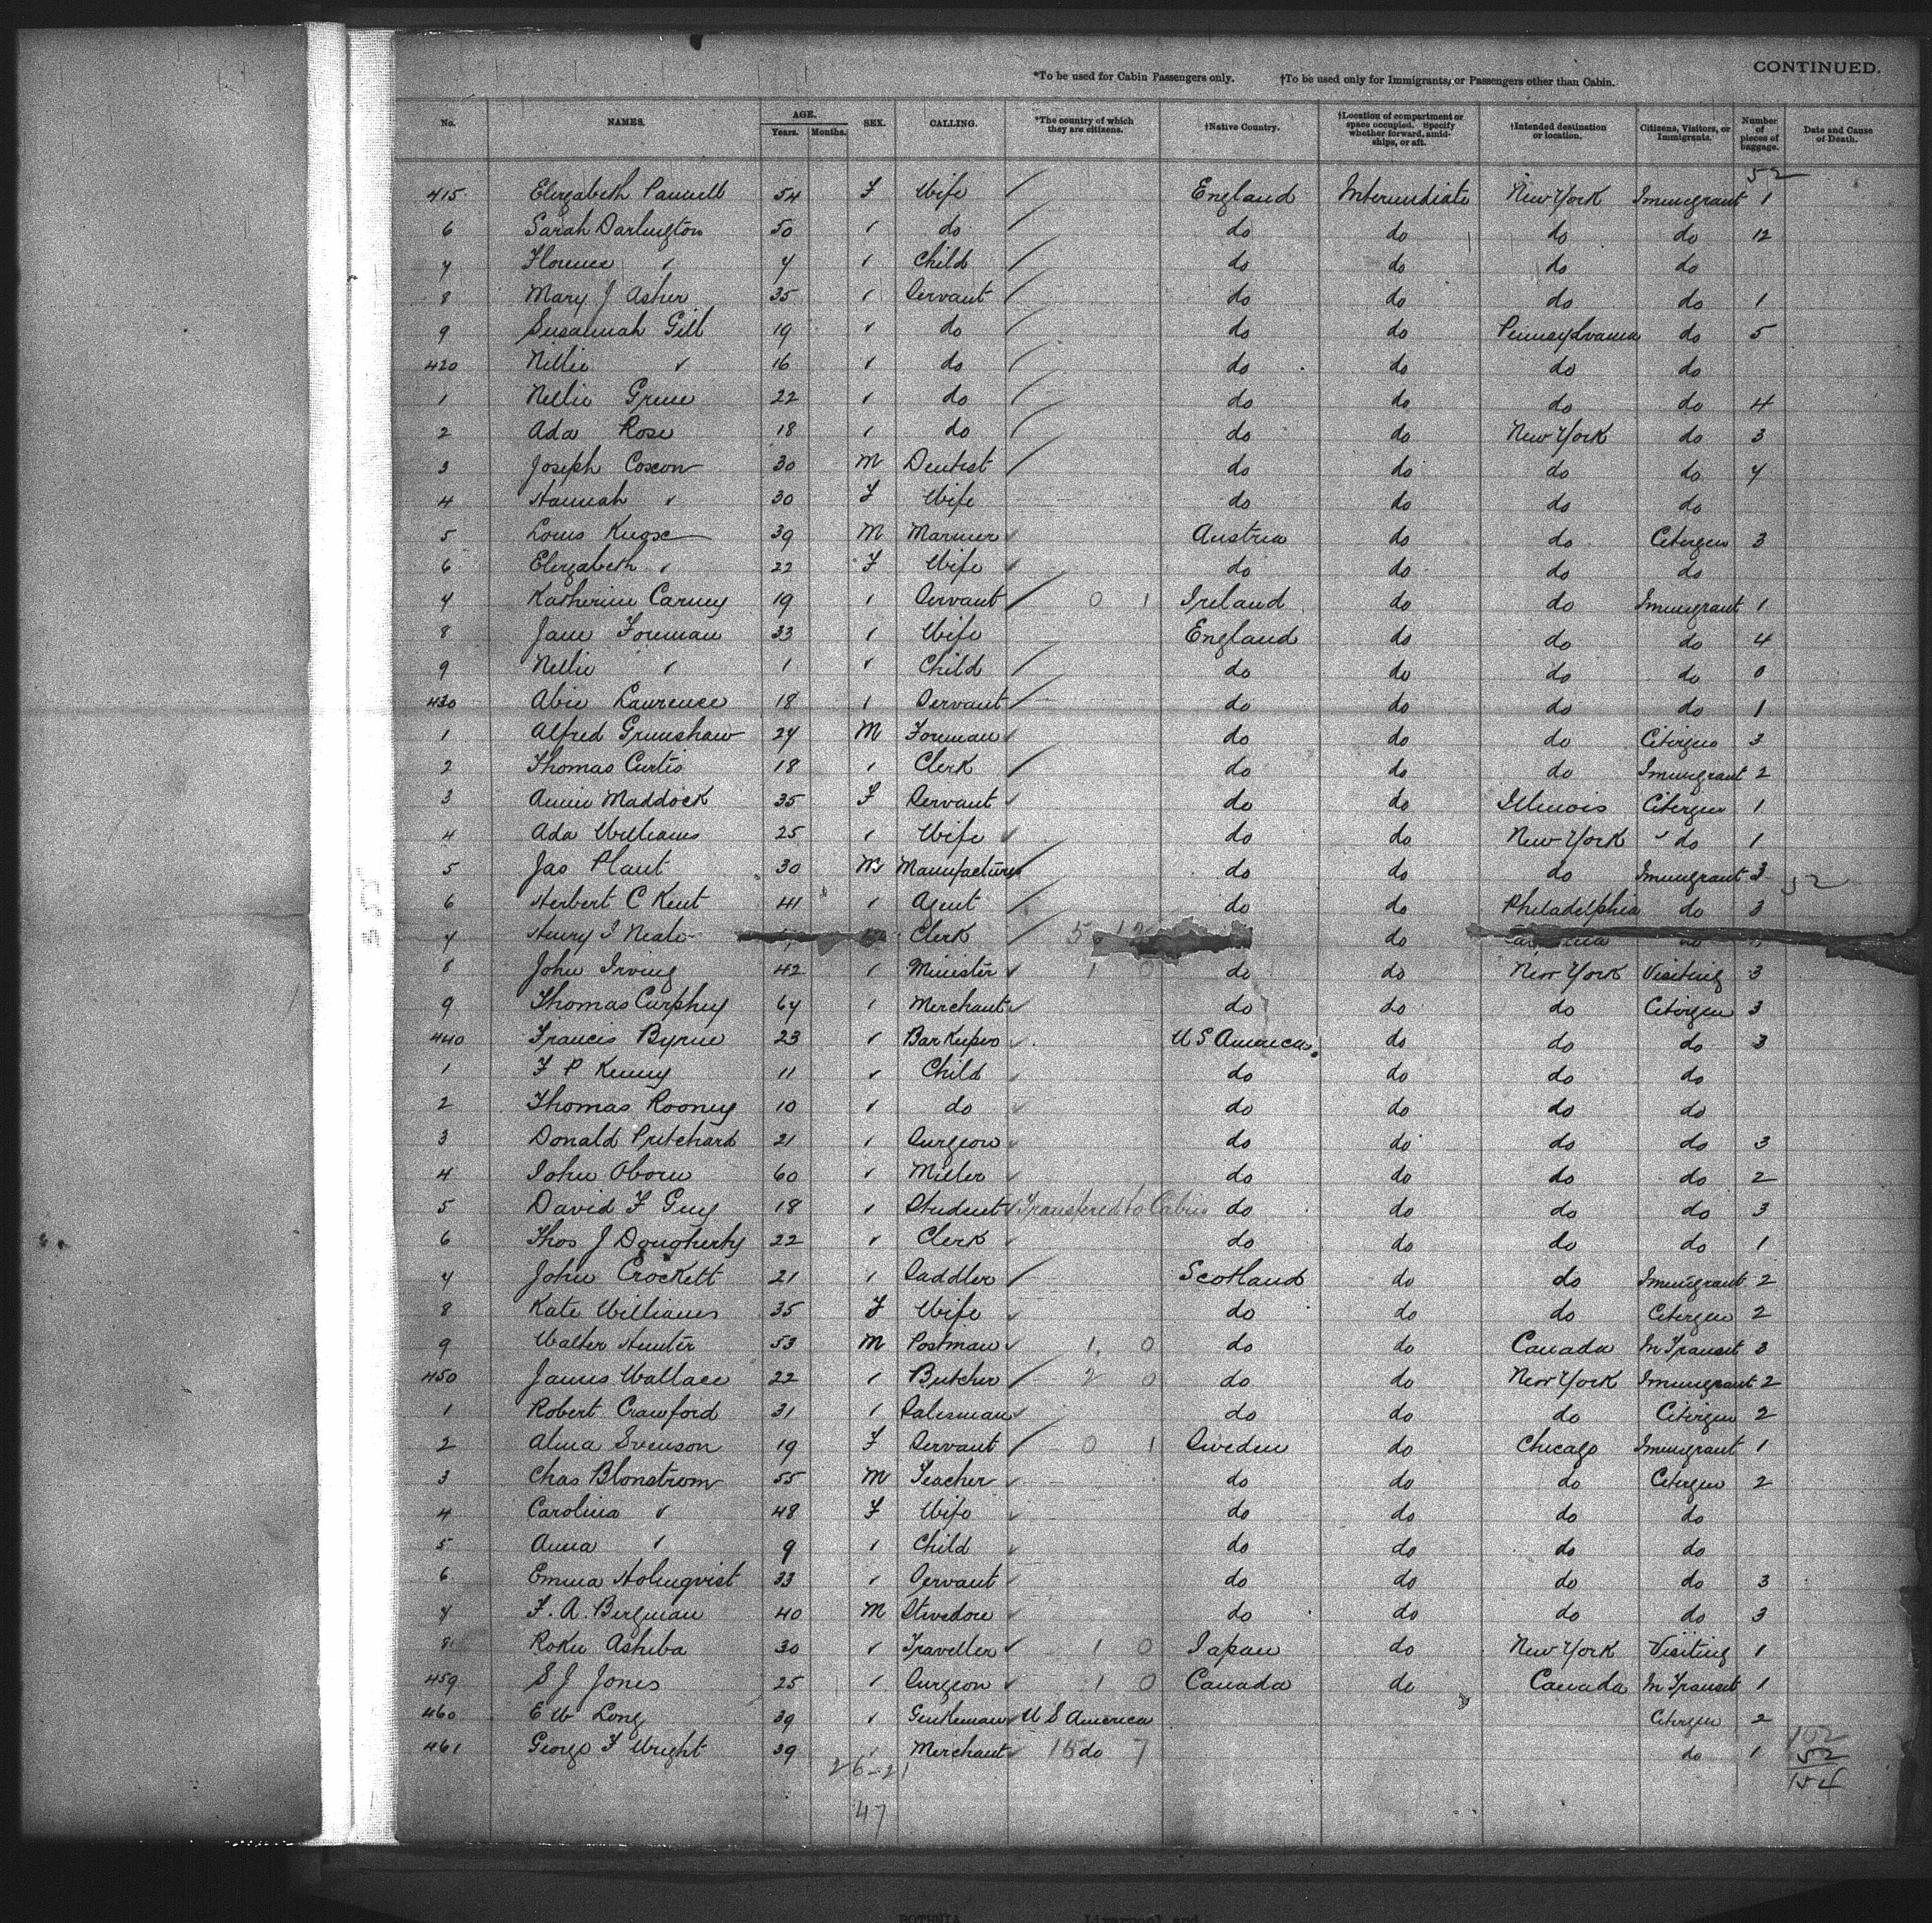 CONTINUED.
*To be used for Cabin Passengers only. †To be used only for Immigrants, or Passengers other than Cabin.
No. NAMES. AGE. Years. Months. SEX. CALLING. *The country of which they are citizens. †Native Country. †Location of compartment or space occupied. Specify whether forward, amidships, or aft. †Intended destination or location. Citizens, Visitors, or Immigrants. Number of pieces of baggage. Date and Cause of Death.
52
415 Elizabeth 54 F Wife / England Intermediate New York Immigrant 1
6 Sarah Darlington 50 " do / do do do do 12
7 Florence " 7 " Child / do do do do
8 Mary J Asher 35 " Servant / do do do do 1
9 Susannah Gill 19 " do / do do Pennsylvania do 5
420 Nellie " 16 " do / do do do do
1 Nellie 22 " do / do do do do 4
2 Ada Rose 18 " do / do do New York do 3
3 Joseph Coxon 30 M Dentist / do do do do 7
4 Hannah " 30 F Wife do do do do
5 Louis 39 M Mariner ✓ Austria do do Citizen 3
6 Elizabeth " 22 F Wife ✓ do do do do
7 Katherine Carney 19 " Servant / 0 1 Ireland do do Immigrant 1
8 Jane Foreman 33 " Wife England do do do 4
9 Nellie " 1 " Child / do do do do 0
430 Abie Laurence 18 " Servant / do do do do 1
1 Alfred Grimshaw 27 M Foreman ✓ do do do Citizen 3
2 Thomas Curtis 18 " Clerk / do do do Immigrant 2
3 Annie Maddock 35 F Servant ✓ do do Illinois Citizen 1
4 Ada Williams 25 " Wife ✓ do do New York do 1
5 Jas Plant 30 M Manufacturer / do do do Immigrant 3 52
6 Herbert C Kent 41 " Agent / do do Philadelphia do 3
7 Henry Neale Clerk / 5 12 do
8 John Irving 42 " Minister ✓ 1 0 do do New York Visiting 3
9 Thomas Curphey 67 " Merchant ✓ do do do Citizen 3
440 Francis Byrne 23 " Bar Keeper ✓ U S America do do do 3
1 F P Kenny 11 " Child ✓ do do do do
2 Thomas Rooney 10 " do ✓ do do do do
3 Donald Pritchard 21 " Surgeon ✓ do do do do 3
4 John Oborn 60 " Miller ✓ do do do do 2
5 David F Guy 18 " Student ✓ Transfered to Cabin do do do do 3
6 Thos J Dougherty 22 " Clerk ✓ do do do do 1
7 John Crockett 21 " Saddler / Scotland do do Immigrant 2
8 Kate Williams 35 F Wife ✓ do do do Citizen 2
9 Walter Hunter 53 M Postman ✓ 1 0 do do Canada In Transit 3
450 James Wallace 22 " Butcher / 2 0 do do New York Immigrant 2
1 Robert Crawford 31 " Salesman ✓ do do do Citizen 2
2 Alma Svenson 19 F Servant / 0 1 Sweden do Chicago Immigrant 1
3 Chas Blonstrom 55 M Teacher ✓ do do do Citizen 2
4 Carolina " 48 F Wife ✓ do do do do
5 Anna " 9 " Child ✓ do do do do
6 Emma Holmqvist 33 " Servant ✓ do do do do 3
7 F. A. Bergman 40 M Stevedore ✓ do do do do 3
8 Roku Ashiba 30 " Traveller ✓ 1 0 Japan do New York Visiting 1
459 S J Jones 25 " Surgeon ✓ 1 0 Canada do Canada In Transit 1
460 E W Long 39 " Gentleman ✓ U S America Citizen 2
461 George F Wright 39 " Merchant ✓ 15 do 7 do 1
102
52
154
26-21
47
BOTHNIA Liverpool and